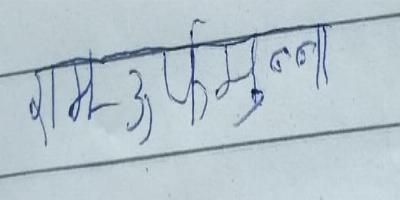 राम उर्फ मुन्ना